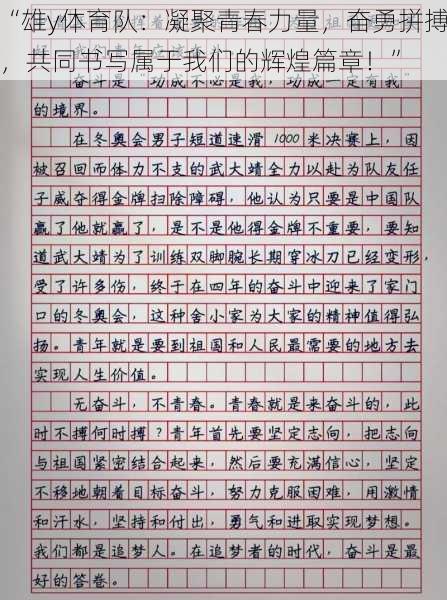 “雄y体育队：凝聚青春力量，奋勇拼搏
，共同书写属于我们的辉煌篇章！”
奋斗是“功成不必是我，功成一定有我”
的境界。
在冬奥会男子短道速滑1000米决赛上，因
被召回而体力不支的武大靖全力以赴为队友任
子威夺得金牌扫除障碍，他认为只要是中国队
赢了他就赢了，是不是他得金牌不重要，要知
道武大靖为了训练双脚腕长期穿冰刀已经变形，
受了许多伤，终于在四年的奋斗中迎来了家门
口的冬奥会，这种舍小家为大家的精神值得弘
扬。青年就是要到祖国和人民最需要的地方去
实现人生价值。
无奋斗，不青春。青春就是来奋斗的，此
时不搏何时搏？青年首先要坚定志向，把志向
与祖国紧密结合起来，然后要充满信心，坚定
不移地朝着目标奋斗，努力克服困难，用激情
和汗水，坚持和付出，勇气和进取实现梦想。
我们都是追梦人。在追梦者的时代，奋斗是最
好的答卷。